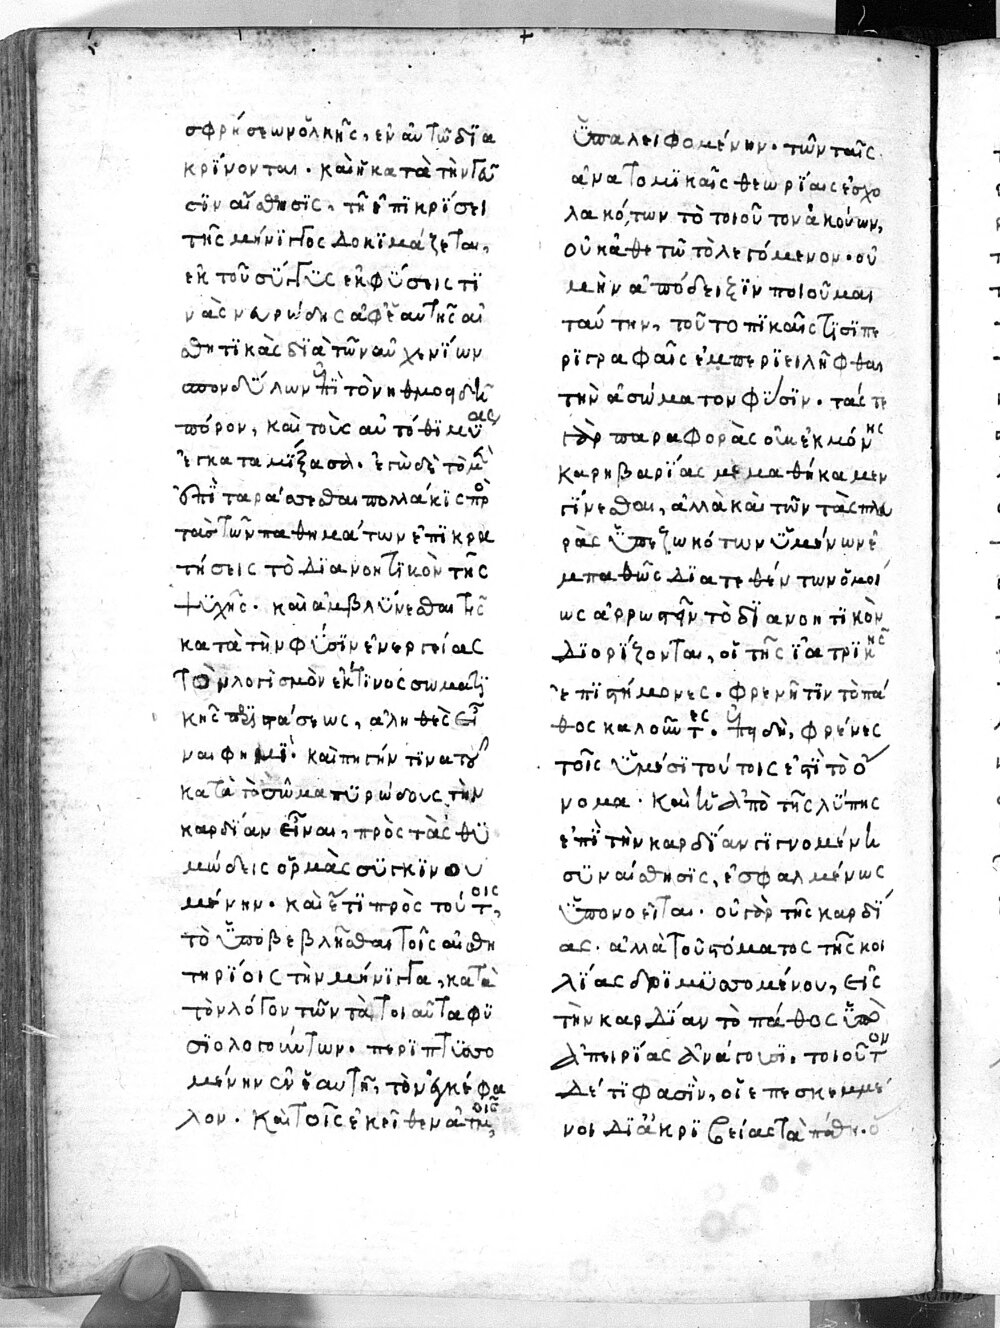 σφρήσεων ὁλκῆς, ἐν αὐτῷ δϊα
κρίνονται. καὶ ἡ κατὰ τὴν γεῦ
σιν αἴσθησις, τῇ ἐπικρίσει
τῆς μήνιγγος δοκιμάζεται,
ἐκ τοῦ σύνεγγυς ἐκφύσεις τι
νὰς νευρώδης ἀφ' ἑαυτῆς αἰ
σθητικὰς διὰ τῶν αὐχενίων
σπονδύλων ἐπὶ τὸν ἠθμοειδῆ
πόρον, καὶ τοὺς αὐτόθι μύας
ἐγκαταμιξάσῃ. ἐγὼ δὲ τὸ μὲν
ἐπιταράττεσθαι πολλάκις πρὸς
τὰς τῶν παθημάτων ἐπικρα
τήσεις τὸ διανοητικὸν τῆς
ψυχῆς. καὶ ἀμβλύνεσθαι τῆς
κατὰ τὴν φύσιν ἐνεργείας
τὸν λογισμὸν ἔκ τινος σωματι
κῆς περιστάσεως, ἀληθὲς εἶ
ναι φημί. καὶ πηγήν τινα τοῦ
κατὰ τὸ σῶμα πυρώδους τὴν
καρδίαν εἶναι, πρὸς τὰς θυ
μώδεις ὁρμὰς συγκινου
μένην. καὶ ἔτι πρὸς τούτοις,
τὸ ὑποβεβλῆσθαι τοῖς αἰσθη
τηρίοις τὴν μήνιγγα, κατὰ
τὸν λόγον τῶν τὰ τοιαῦτα φυ
σιολογούντων. περιπτυσσο
μένην ἐν ἑαυτῇ, τὸν ἐγκέφα
λον. καὶ τοῖς ἐκεῖθεν ἀτμοῖς,
ὑπαλειφομένην. τῶν ταῖς
ἀνατομικαῖς θεωρίαις ἐσχο
λακότων τὸ τοιοῦτον ἀκούων,
οὐκ ἀθετῶ τὸ λεγόμενον. οὐ
μὴν ἀπόδειξιν ποιοῦμαι
ταύτην, τοῦ τοπικαῖς τισὶ πε
ριγραφαῖς ἐμπεριειλῆφθαι
τὴν ἀσώματον φύσιν. τάς τε
γὰρ παραφορὰς οὐκ ἐκ μόνης
καρηβαρίας μεμαθήκαμεν
γίνεσθαι, ἀλλὰ καὶ τῶν τὰς πλευ
ρὰς ὑπεζωκότων ὑμένων ἐ
μπαθῶς διατεθέντων ὁμοί
ως ἀρρωστῆν τὸ διανοητικὸν
διορίζονται, οἱ τῆς ἰατρικῆς
ἐπιστήμονες. φρενῆτιν τὸ πά
θος καλοῦντες. ἐπειδὴ, φρένες
τοῖς ὑμέσι τούτοις ἐστὶ τὸ ὄ
νομα. καὶ ἡ ἀπὸ τῆς λύπης
ἐπὶ τὴν καρδίαν γιγνομένη
συναίσθησις, ἐσφαλμένως
ὑπονοεῖται. οὐ γὰρ τῆς καρδί
ας. ἀλλὰ τοῦ στόματος τῆς κοι
λίας δριμυσσομένου, εἰς
τὴν καρδίαν τὸ πάθος ὑπὸ
ἀπειρίας ἀνάγουσι. τοιοῦτον
δέ τι φασὶν, οἱ ἐπεσκεμμέ
νοι δι' ἀκριβείας τὰ πάθη. ὅ